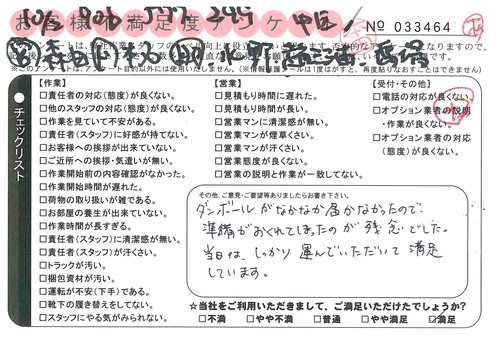 お客様の満足度アンケート
No 033464
☆このアンケートは、アンケート目的以外には使用いたしません。(※情報保護シールは1度はがすと、再度貼りなおすことはできません)
チェックリスト
【作業】
□責任者の対応(態度)が良くない。
□他のスタッフの対応(態度)が良くない。
□作業を見ていて不安がある。
□責任者(スタッフ)に好感が持てない。
□お客様への挨拶が出来ていない。
□ご近所への挨拶・気遣いが無い。
□作業開始前の内容確認がなかった。
□作業開始時間が遅れた。
□荷物の取り扱いが雑である。
□お部屋の養生が出来ていない。
□作業時間が長すぎる。
□責任者(スタッフ)に清潔感が無い。
□責任者(スタッフ)が汗くさい。
□トラックが汚い。
□梱包資材が汚い。
□運転が不安(下手)である。
□靴下の履き替えをしてない。
□スタッフにやる気がみられない。
【営業】
□見積もりに遅れた。
□見積もり時間が長い。
□営業マンに清潔感が無い。
□営業マンが煙草くさい。
□営業マンが汗くさい。
□営業態度が良くない。
□営業の説明と作業が一致してない。
【受付・その他】
□電話の対応が良くない。
□オプション業者の説明
・作業が良くない。
□オプション業者の対応
(態度)が良くない。
その他、ご意見・ご要望等ありましたらお書き下さい。
ダンボールがなかなか届かなかったので、
準備がおくれてしまったのが残念でした。
当日は、しっかり運んでいただいて満足
しています。
☆当社をご利用いただきまして、ご満足いただけたでしょうか?
□不満 □やや不満 □普通 □やや満足 ☑満足